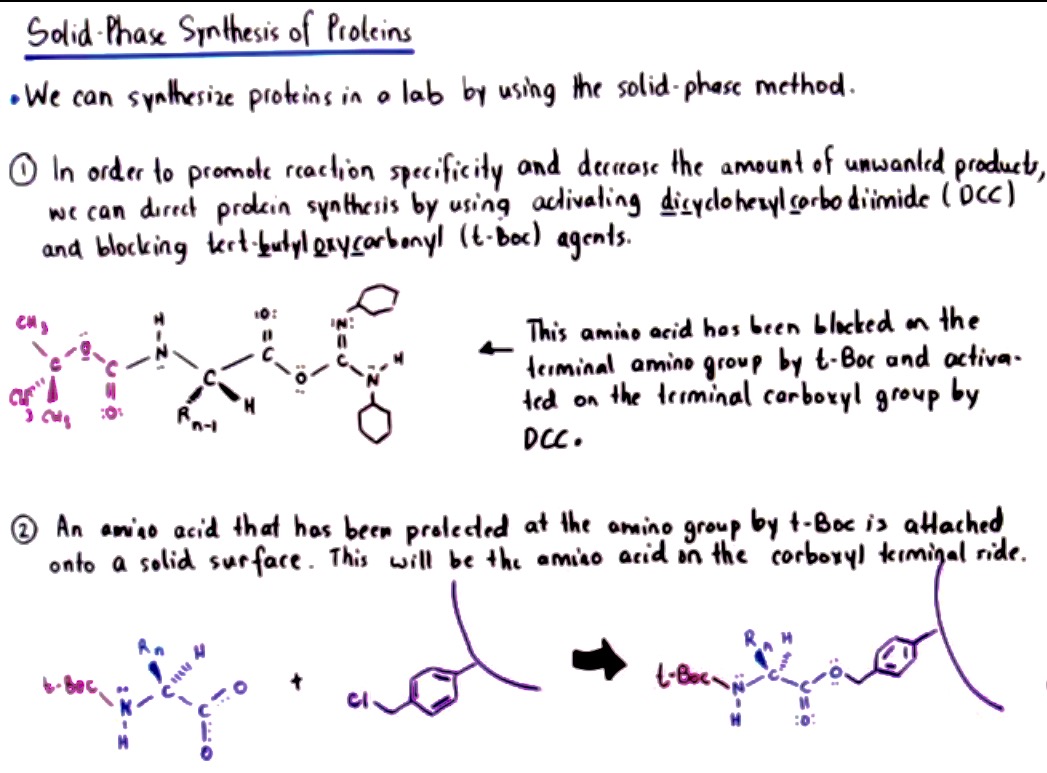 Solid-Phase Synthesis of Proteins
• We can synthesize proteins in a lab by using the solid-phase method.
① In order to promote reaction specificity and decrease the amount of unwanted products,
we can direct protein synthesis by using activating dicyclohexylcarbodiimide (DCC)
and blocking tert-butyloxycarbonyl (t-Boc) agents.
CH3 CH3 CH3 C O C :O: H N C Rn-1 H :O: C O C :N: N H
← This amino acid has been blocked on the
terminal amino group by t-Boc and activa-
ted on the terminal carboxyl group by
DCC.
② An amino acid that has been protected at the amino group by t-Boc is attached
onto a solid surface. This will be the amino acid on the carboxyl terminal side.
t-Boc N H C Rn H C O O + Cl → t-Boc N H C Rn H C :O: O